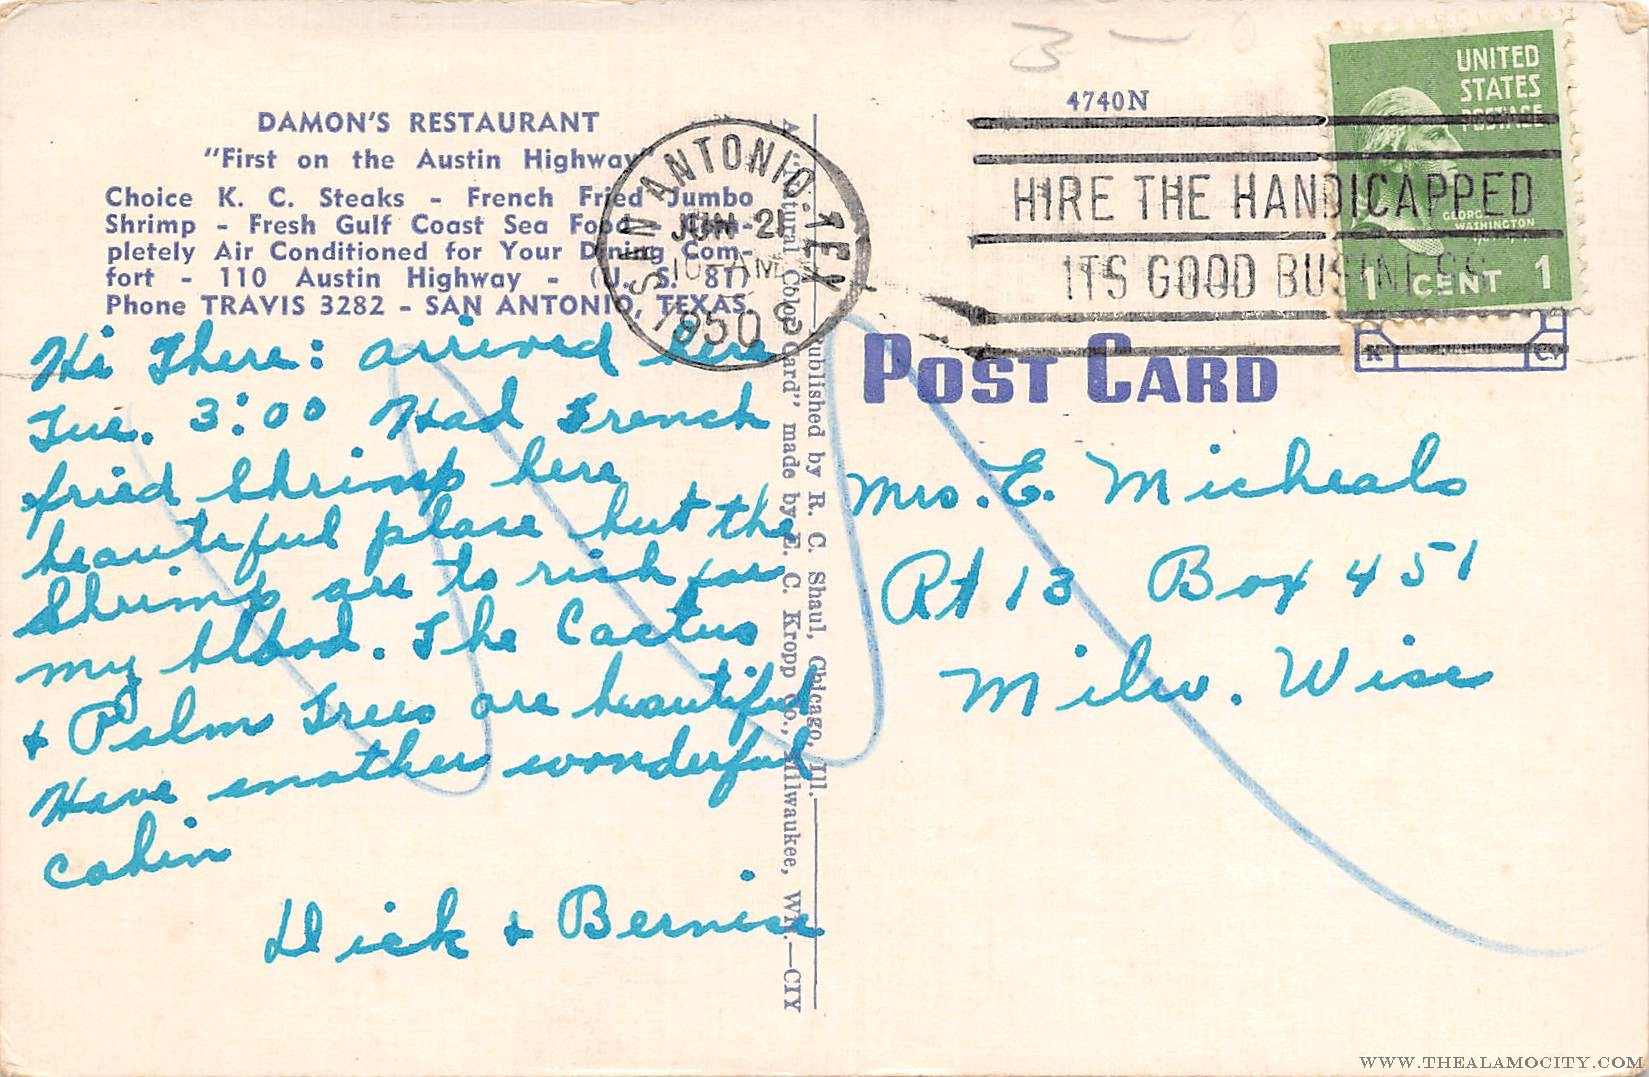 DAMON'S RESTAURANT
"First on the Austin Highway"
Choice K. C. Steaks - French Fried Jumbo
Shrimp - Fresh Gulf Coast Sea Food - Com-
pletely Air Conditioned for Your Dining Com-
fort - 110 Austin Highway - (U. S. 81)
Phone TRAVIS 3282 - SAN ANTONIO, TEXAS.
Hi There: arrived here
Tue. 3:00 Had French
fried Shrimp here
beautiful place but the
Shrimp are to rich for
my blood. The Cactus
+ Palm Trees are beautiful
Have another wonderful
cabin
Dick + Bernice
SAN ANTONIO, TEX.
JUN 21
10 - AM
1950
A Natural Color Card" made by E. C. Kropp Co., Milwaukee, Wis.—CIY
Published by R. C. Shaul, Chicago, Ill.
3 -
4740N
HIRE THE HANDICAPPED
ITS GOOD BUSINESS
UNITED
STATES
POSTAGE
GEORGE
WASHINGTON
1 CENT 1
POST CARD
Mrs. E. Micheals
Rt 13 Box 451
Milw. Wisc
WWW.THEALAMOCITY.COM